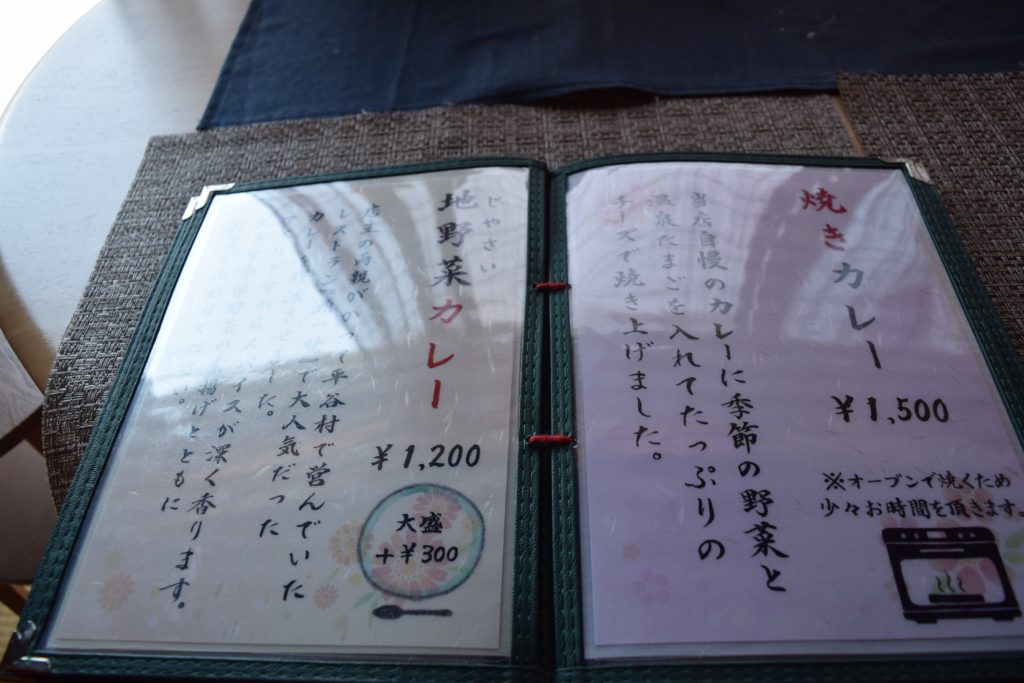 焼きカレー
¥1,500
当店自慢のカレーに季節の野菜と
温泉たまごを入れてたっぷりの
チーズで焼き上げました。
※オーブンで焼くため
少々お時間を頂きます。
じやさい
地野菜カレー
¥1,200
大盛
+¥300
店主の両親がかつて平谷村で営んでいた
レストラン
で大人気だった
カレーを
した。
スパイスが深く香ります。
季節野菜の素揚げとともに